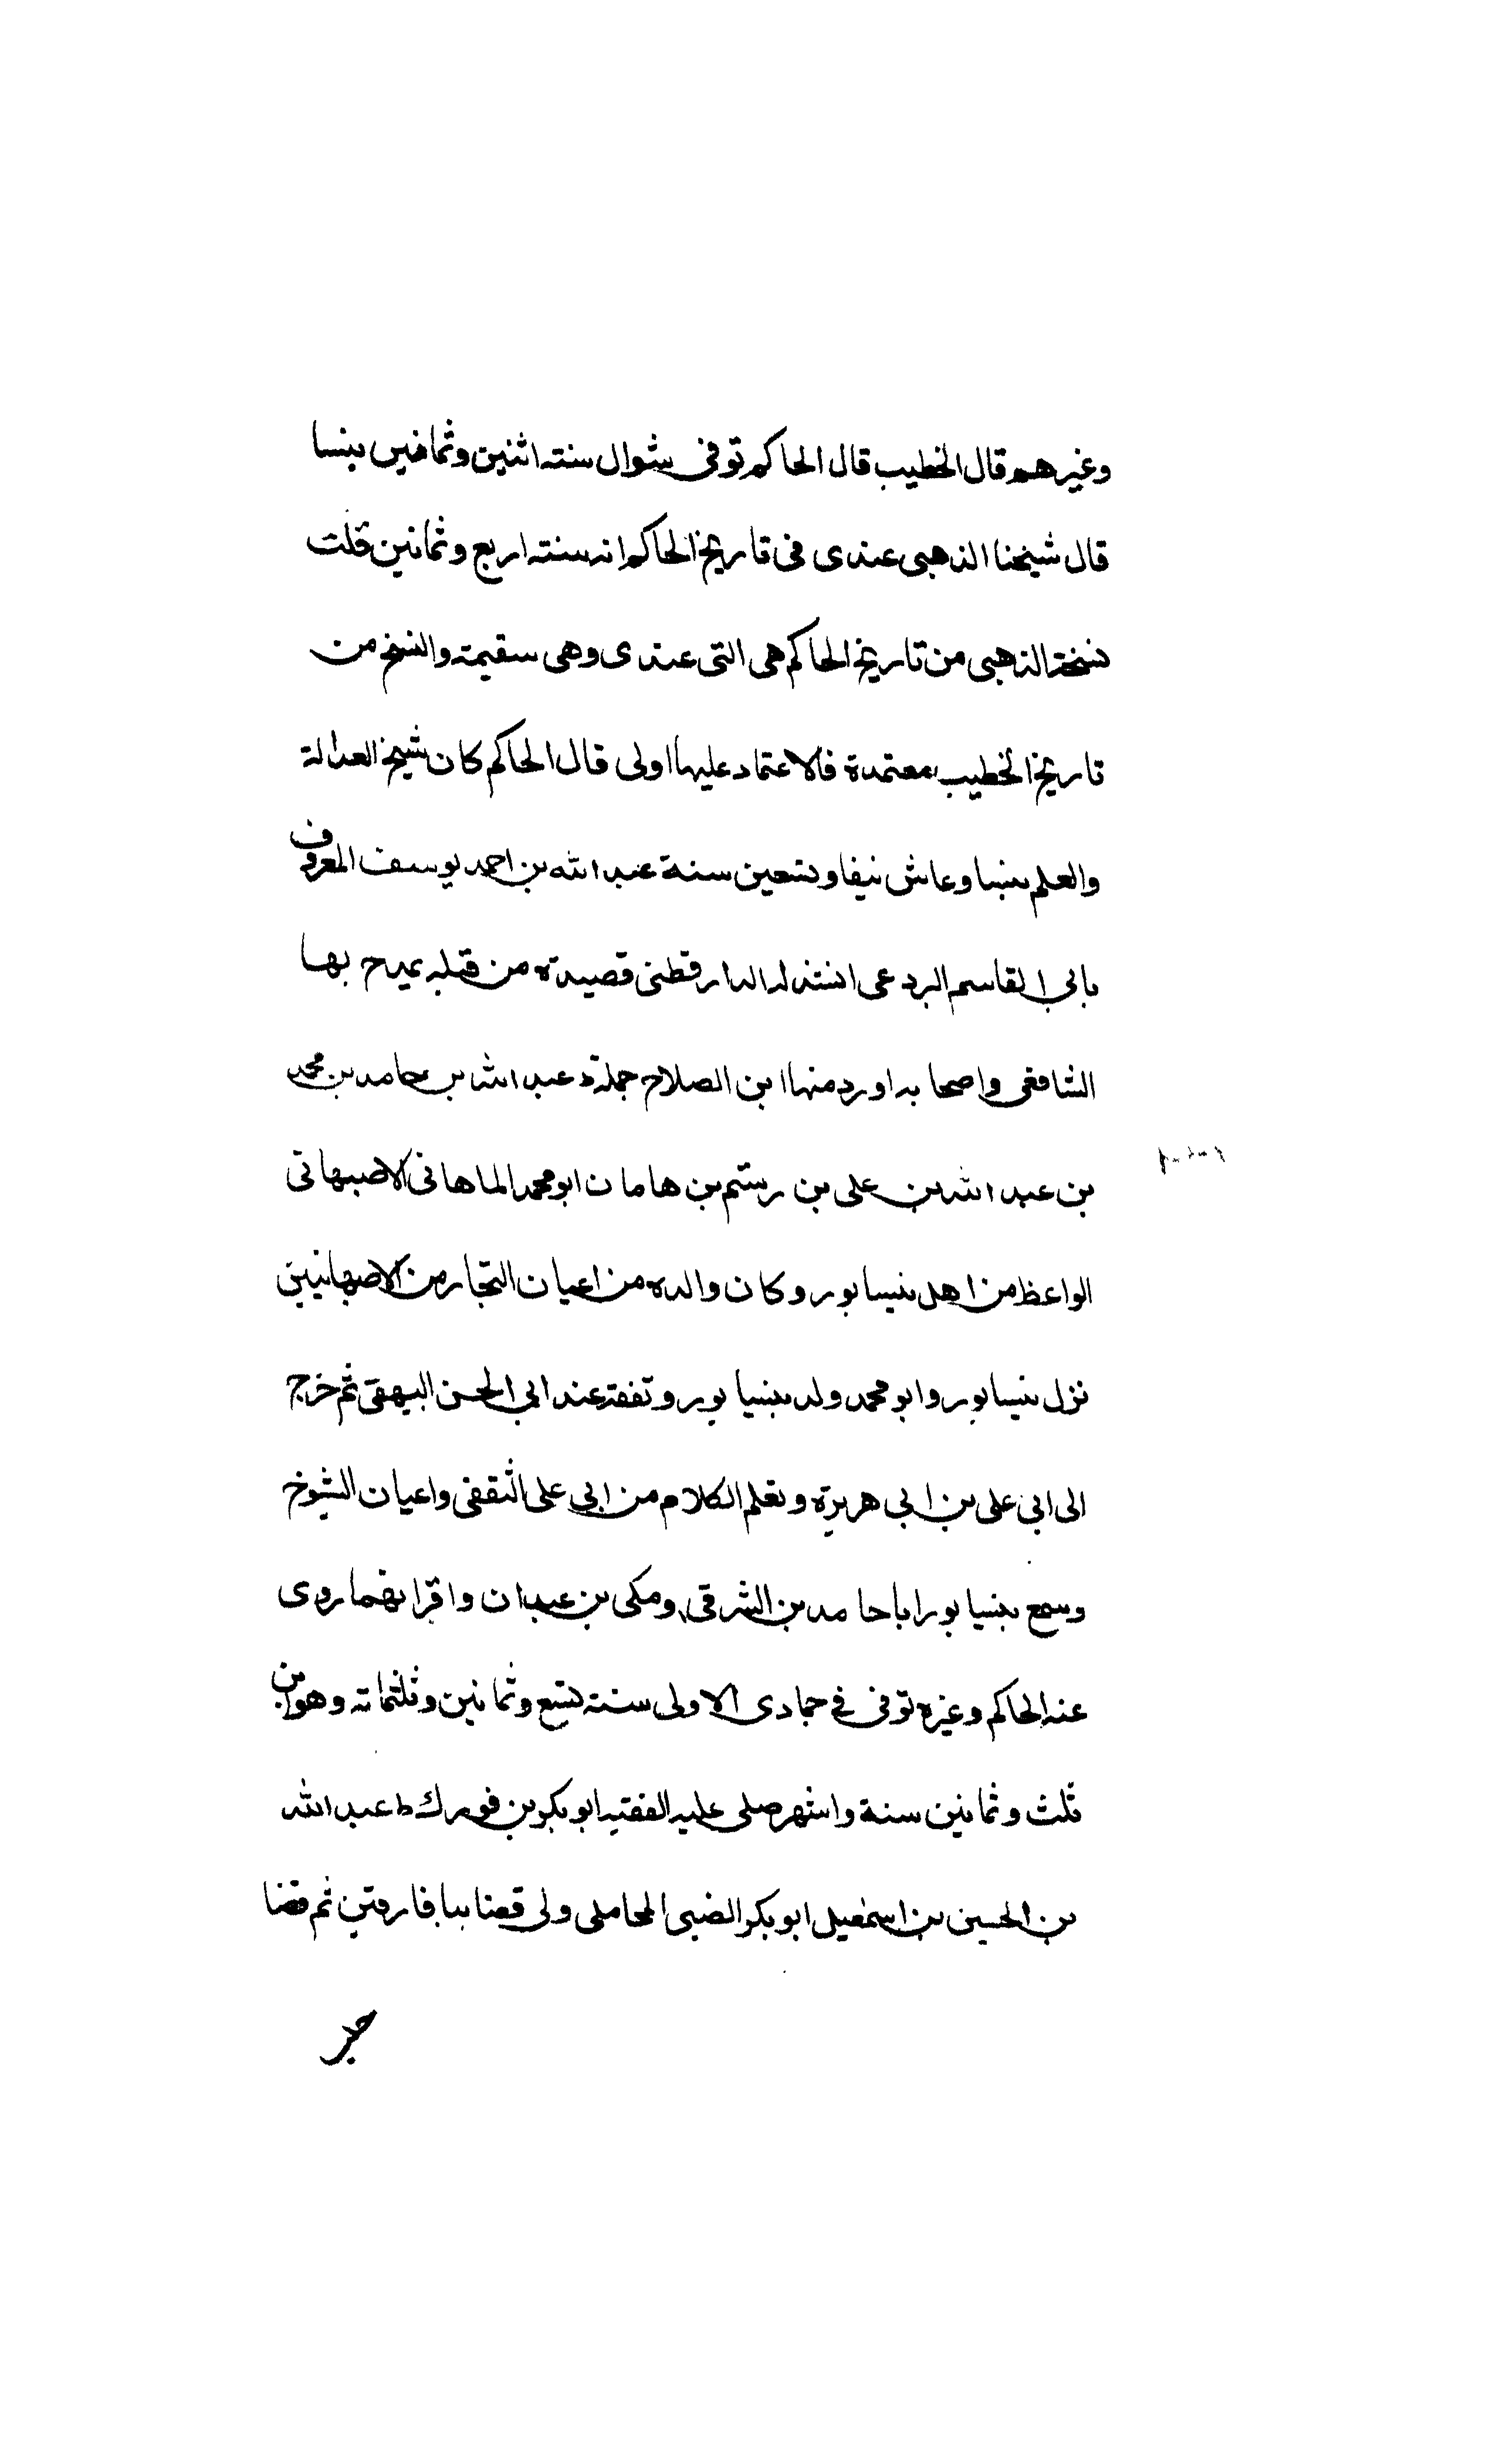 وغيرهم قال الخطيب قال الحاكم توفى شوال سنة اثنين وثمانين بنسا
قال شيخنا الذهبي عندى فى تاريخ الحاكم انه سنة اربع وثمانين قلت
نسخة الذهبي من تاريخ الحاكم هى التى عندى وهى سقيمة والنسخ من
تاريخ الخطيب معتمدة فالاعتماد عليها اولى قال الحاكم كان شيخ العدالة
والعلم بنسا وعاش نيفا وتسعين سنة عبد الله بن احمد يوسف المعروف
بابى القاسم البردعى انشد له الدارقطنى قصيدة من قبله يمدح بها
الشافعى واصحابه اورد منها ابن الصلاح جملة عبد الله بن حامد بن محمد
بن عبد الله بن على بن رستم بن هامان ابو محمد الماهانى الاصبهانى
الواعظ من اهل نيسابور وكان والده من اعيان التجار من الاصبهانيين
نزل نيسابور وابو محمد ولد بنيسابور وتفقه عند ابى الحسن البيهقى ثم خرج
الى ابى على بن ابى هريرة وتعلم الكلام من ابى على الثقفى واعيان الشيوخ
وسمع بنيسابور ابا حامد بن الشرقى ومكى بن عبدان واقرانهما روى
عنه الحاكم وغيره توفى فى جمادى الاولى سنة تسع وثمانين وثلثمائة وهو ابن
ثلث وثمانين سنة واشهر صلى عليه الفقيه ابو بكر بن فورك ط عبد الله
بن الحسين بن اسمعيل ابو بكر الضبى المحاملى ولى قضا ميافارقين ثم قضا